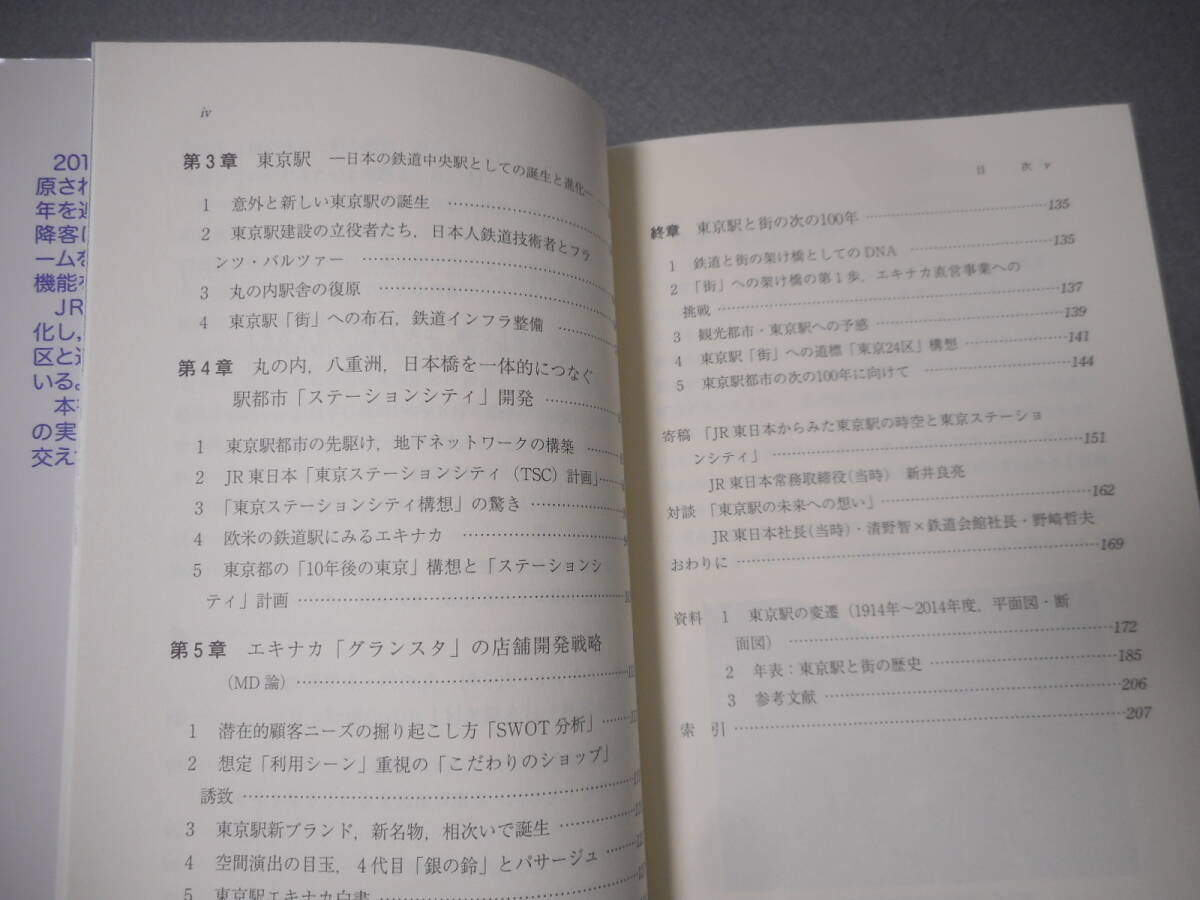 201
原され
年を迎
降客に
ームを
機能を
JR
化し，
区と連
いる。
本
の実
交え
iv
第3章 東京駅 ―日本の鉄道中央駅としての誕生と進化―
1 意外と新しい東京駅の誕生
2 東京駅建設の立役者たち，日本人鉄道技術者とフラ
ンツ・バルツァー
3 丸の内駅舎の復原
4 東京駅「街」への布石，鉄道インフラ整備
第4章 丸の内，八重洲，日本橋を一体的につなぐ
駅都市「ステーションシティ」開発
1 東京駅都市の先駆け，地下ネットワークの構築
2 JR東日本「東京ステーションシティ（TSC）計画」
3 「東京ステーションシティ構想」の驚き
4 欧米の鉄道駅にみるエキナカ
5 東京都の「10年後の東京」構想と「ステーションシ
ティ」計画
第5章 エキナカ「グランスタ」の店舗開発戦略
（MD論）
1 潜在的顧客ニーズの掘り起こし方「SWOT分析」
2 想定「利用シーン」重視の「こだわりのショップ」
誘致
3 東京駅新ブランド，新名物，相次いで誕生
4 空間演出の目玉，4代目「銀の鈴」とパサージュ
5 東京駅エキナカ白書
目 次 v
終章 東京駅と街の次の100年 135
1 鉄道と街の架け橋としてのDNA 135
2 「街」への架け橋の第1歩，エキナカ直営事業への
挑戦 137
3 観光都市・東京駅への予感 139
4 東京駅「街」への道標「東京24区」構想 141
5 東京駅都市の次の100年に向けて 144
寄稿 「JR東日本からみた東京駅の時空と東京ステーショ
ンシティ」 151
JR東日本常務取締役(当時) 新井良亮
対談 「東京駅の未来への想い」 162
JR東日本社長(当時)・清野智×鉄道会館社長・野﨑哲夫
おわりに 169
資料 1 東京駅の変遷（1914年～2014年度，平面図・断
面図） 172
2 年表：東京駅と街の歴史 185
3 参考文献 206
索 引 207